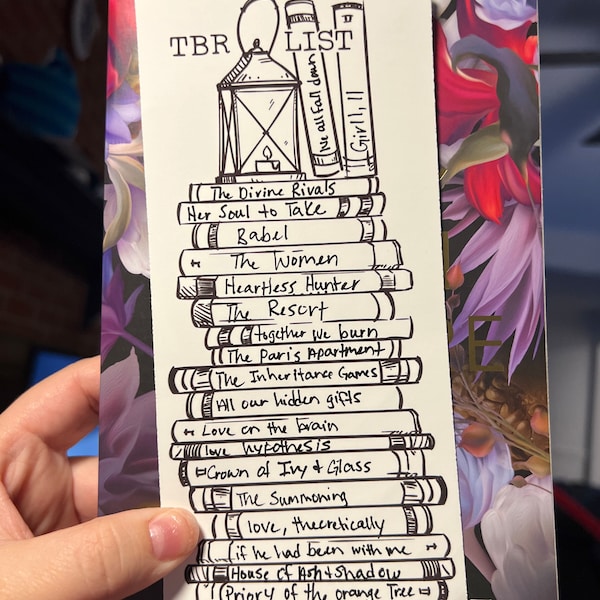 TBR LIST
We all fall down
Girl 1, 11
The Divine Rivals
Her Soul to Take
Babel
The Women
Heartless Hunter
The Resort
together we burn
The Paris Apartment
The Inheritance Games
All our hidden gifts
Love on the brain
love hypothesis
Crown of Ivy & Glass
The Summoning
love, theoretically
if he had been with me
House of Ash & Shadow
Priory of the orange Tree
E